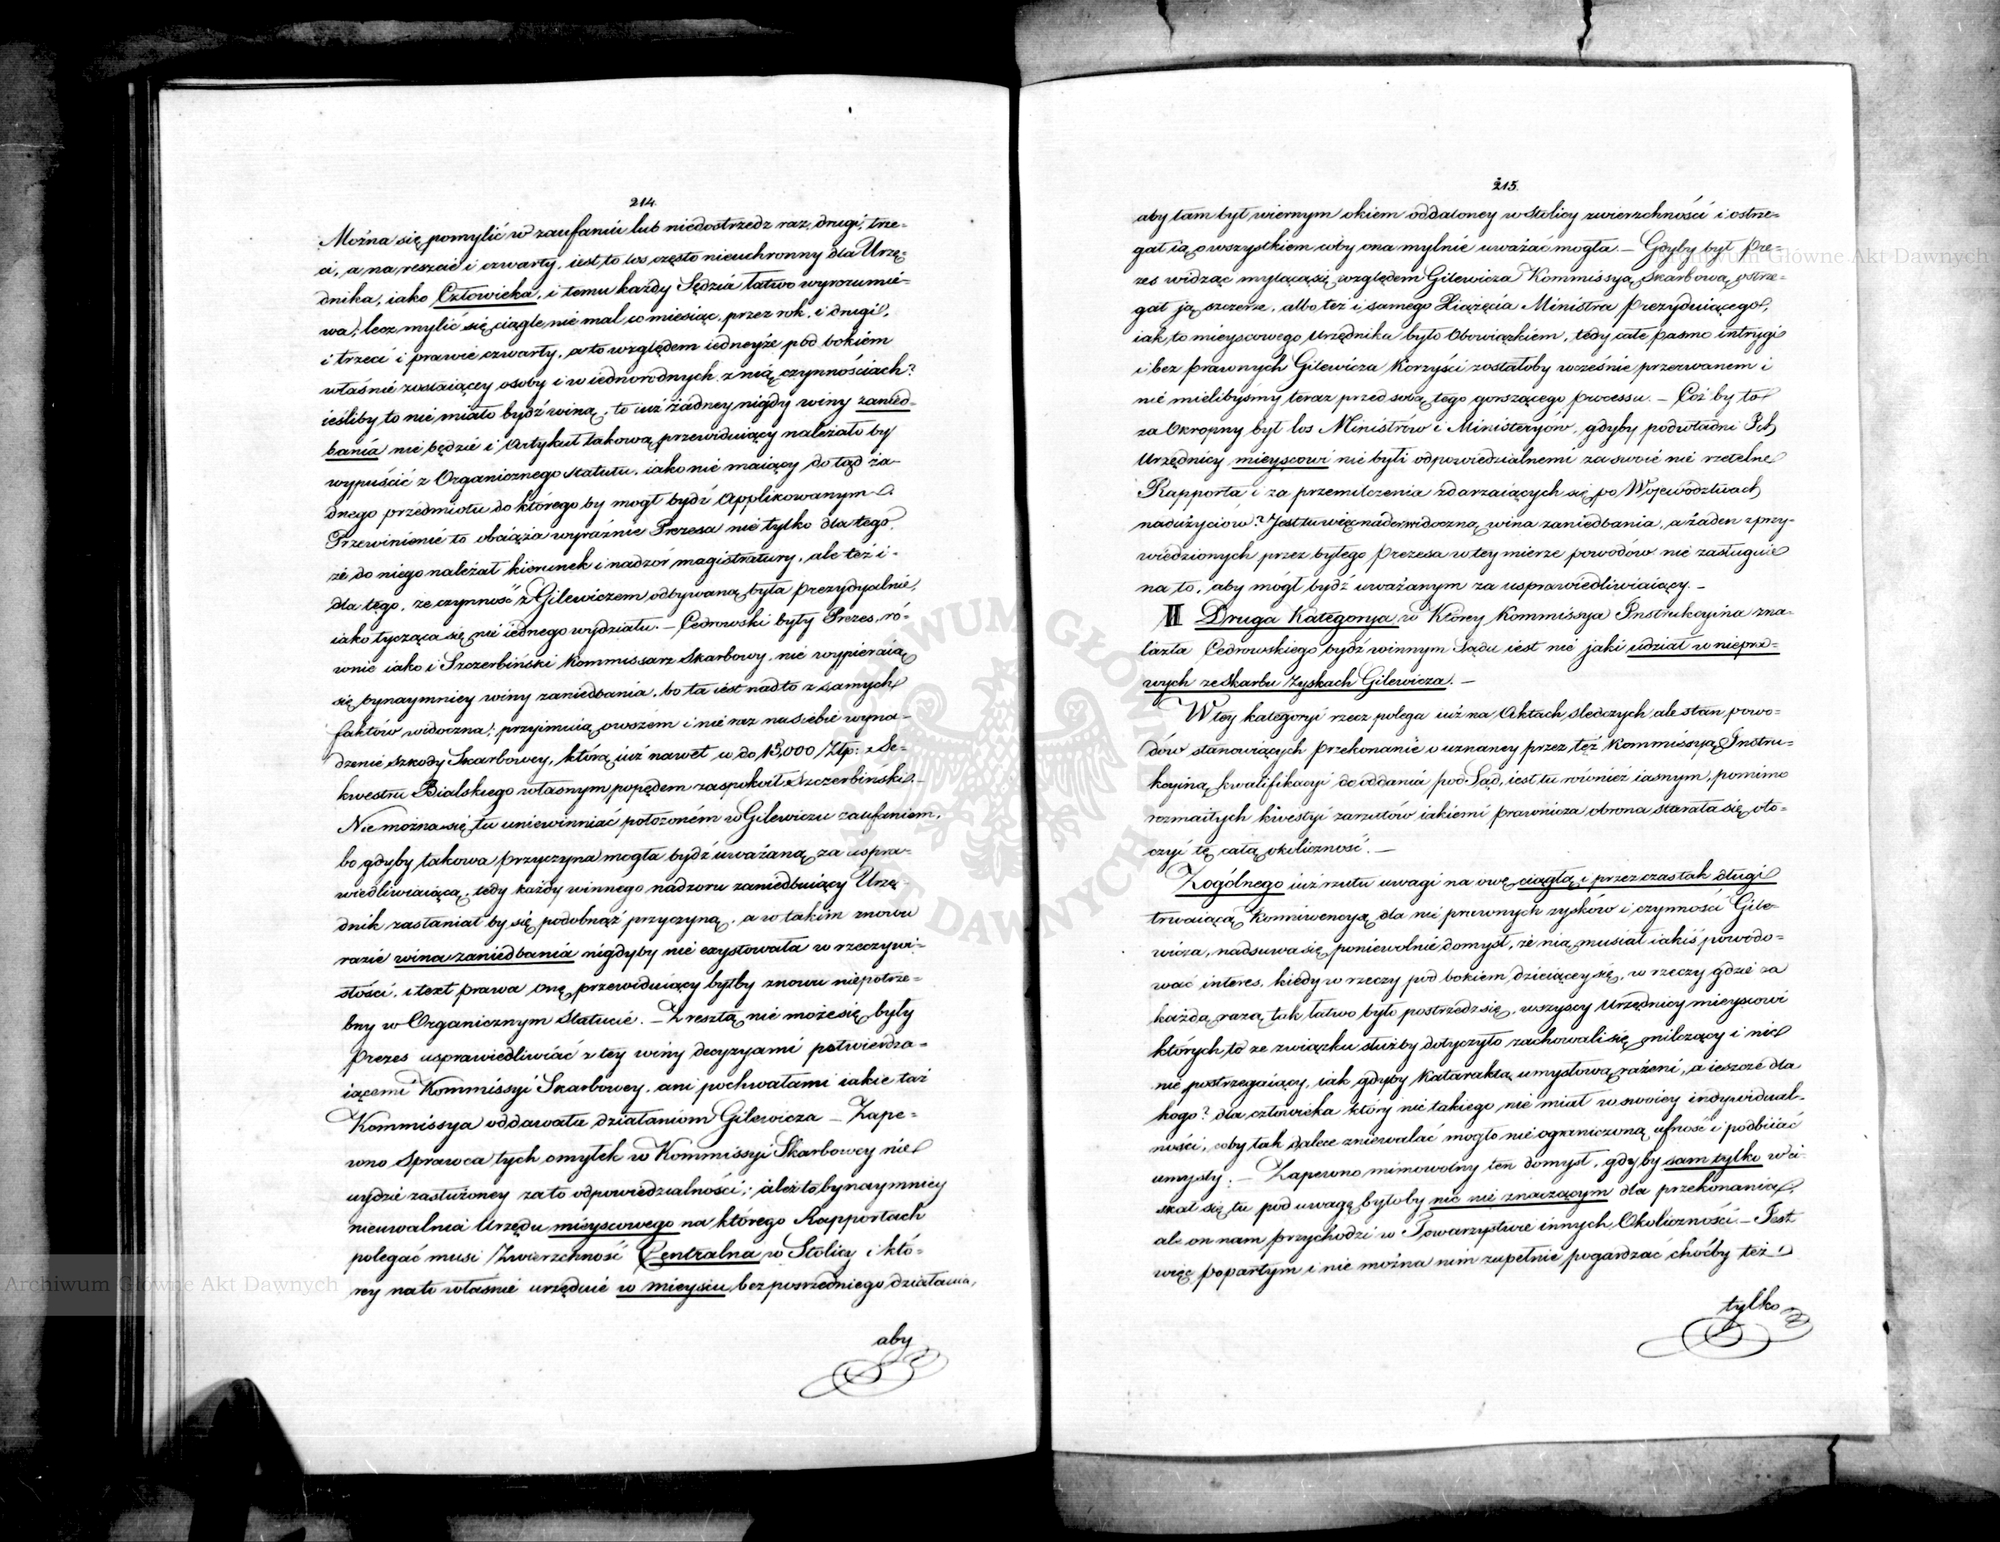 214.
Można się pomylić w zaufaniu lub niedostrzedz raz, drugi, trze-
ci, a na reszcie i czwarty, iest to los często nieuchronny dla Urzę-
dnika, iako Człowieka, i temu każdy Sędzia łatwo wyrozumie-
wa, lecz mylić się ciągle nie mal co miesiąc, przez rok, i drugi,
i trzeci i prawie czwarty, a to względem iedneyże pod bokiem
właśnie zostaiącey osoby i w iednorodnych z nią czynnościach?
ieśliby to nie miało bydź winą, to iuż żadney nigdy winy zanied-
bania nie będzie i Artykuł takową przewiduiący należało by
wypuścić z Organicznego Statutu, iako nie maiący do tąd ża-
dnego przedmiotu do którego by mogł bydź Applikowanym.
Przewinienie to obciąża wyraźnie Prezesa nie tylko dla tego,
że do niego należał kierunek i nadzór magistratury, ale też i
dla tego, że czynność z Gilewiczem odbywaną była prezydyalnie,
iako tycząca się nie iednego wydziału. — Cedrowski były Prezes, ró-
wnie iako i Szczerbiński Kommissarz Skarbowy, nie wypieraią
się bynaymniey winy zaniedbania, bo ta iest nadto z samych
faktów widoczna; przyimuią owszem i nie raz na siebie wyna-
dzenie szkody Skarbowey, którą iuż nawet w do 15,000 Złp: z Se-
kwestru Bialskiego własnym popędem zaspokoił Szczerbiński. —
Nie można się tu uniewinniać położoném w Gilewiczu zaufaniem,
bo gdyby takowa przyczyna mogła bydź uważaną za uspra-
wiedliwiaiącą, tedy każdy winnego nadzoru zaniedbuiący Urzę-
dnik zasłaniał by się podobnąż przyczyną, a w takim znowu
razie wina zaniedbania nigdyby nie exystowała w rzeczywi-
stości, i text prawa onę przewiduiący byłby znowu niepotrze-
bny w Organicznym Statucie. — Z resztą nie może się były
Prezes usprawiedliwiać z tey winy decyzyami potwierdza-
iącemi Kommissyi Skarbowey, ani pochwałami iakie taż
Kommissya oddawała działaniom Gilewicza — Zape-
wno Sprawca tych omyłek w Kommissyi Skarbowey nie
uydzie zasłużoney za to odpowiedzialności; ależ to bynaymniey
nieuwalnia Urzędu mieyscowego na którego Rapportach
polegać musi Zwierzchność Centralna w Stolicy i któ-
ry na to właśnie urzęduie w mieyscu bezpośredniego działania,
aby
215.
aby tam był wiernym okiem oddaloney w Stolicy zwierzchności i ostrze-
gał ią o wszystkiem coby ona mylnie uważać mogła. — Gdyby był Pre-
zes widząc mylącą się względem Gilewicza Kommissyą Skarbową, ostrze-
gał ją szczerze, albo też i samego Xiążęcia Ministra Prezyduiącego,
iak to mieyscowego Urzędnika było Obowiązkiem, tedy całe pasmo intrygi
i bez prawnych Gilewicza Korzyści zostałoby wcześnie przerwanem i
nie mielibyśmy teraz przed sobą tego gorszącego processu. — Cóż by to
za Okropny był los Ministrów i Ministeryów, gdyby podwładni Ich
Urzędnicy mieyscowi nie byli odpowiedzialnemi za swoie nie rzetelne
Rapporta i za przemilczenia zdarzaiących się po Województwach
nadużyciów? Jest tu więc nader widoczną wina zaniedbania, a żaden z przy-
wiedzionych przez byłego Prezesa w tey mierze powodów nie zasługuie
na to, aby mógł bydź uważanym za usprawiedliwiaiący. —
II Druga Kategorya w Którey Kommissya Instrukcyina zna-
lazła Cedrowskiego bydź winnym Sądu iest nie jaki udział w niepra-
wych ze Skarbu Zyskach Gilewicza. —
W tey kategoryi rzecz polega iuż na Aktach śledczych, ale stan powo-
dów stanowiących przekonanie o uznaney przez też Kommissyą Instru-
kcyiną kwalifikacyi do oddania pod Sąd, iest tu również iasnym, pomimo
rozmaitych kwestyi zarzutów iakiemi prawnicza obrona starała się oto-
czyć tę całą okoliczność. —
Zogólnego iuż rzutu uwagi na owę ciągłą i przez czas tak długi
trwaiącą Konniwencyą dla nie prawnych zysków i czynności Gile-
wicza, nadsuwa się poniewolnie domysł, że nią musiał iakiś powodo-
wać interes, kiedy w rzeczy pod bokiem dzieiącey się, w rzeczy gdzie za
każdą razą tak łatwo było postrzedz się, wszyscy Urzędnicy mieyscowi
których to ze związku służby dotyczyło zachowali się milczący i nic
nie postrzegaiący, iak gdyby Kataraktą umysłową rażeni, a ieszcze dla
kogo? dla człowieka który nic takiego nie miał w swoiey indywidual-
ności, coby tak dalece zniewalać mogło nieograniczoną ufność i podbiiać
umysły. — Zapewno mimowolny ten domysł, gdyby sam tylko wci-
skał się tu pod uwagę byłoby nic nie znaczącym dla przekonania,
ale on nam przychodzi w Towarzystwie innych Okoliczności — Jest
więc popartym i nie można nim zupełnie pogardzać choćby też
tylko